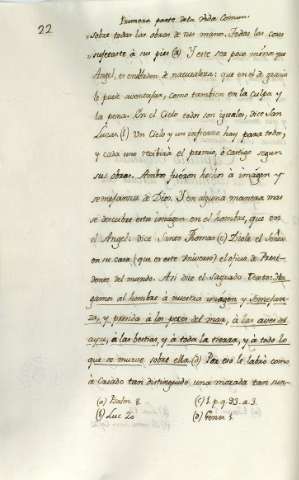 22
Primera parte dela Vida Comun.
sobre todas las obras de tus manos. Todas las cosas
sujetaste à su pies (a) Y este sea poco menos que
Angel, es en órden de naturaleza: que en el de gracia
le puede aventajar, como tambien en la culpa y
la pena. En el Cielo todos son iguales, dice San
Lucas. (b) Un Cielo y un infierno hay para todos,
y cada uno recibirà el premio, ò castigo segun
sus obras. Ambos fueron hechos à imágen y
semejanza de Dios. Y en alguna manera mas
se descubre esta imágen en el hombre, que en
el Angel: dice Santo Thomas (c) Diole el Señor
en su casa (que es este Universo) el oficio de Presi-
dente del mundo. Asi dice el Sagrado Texto: Ha-
gamos al hombre à nuestra imágen y semejan-
za, y presida à los peces del mar, à las aves del
ayre, à las bestias, y à toda la tierra, y à todo lo
que se mueve sobre ella. (d) Por eso le labró como
à Criado tan distinguido, una morada tan sun-
(a) Psalm. 8.
(c) 1. p. q. 93. a. 3.
(b) Luc. 20
(d) Genes. 1.